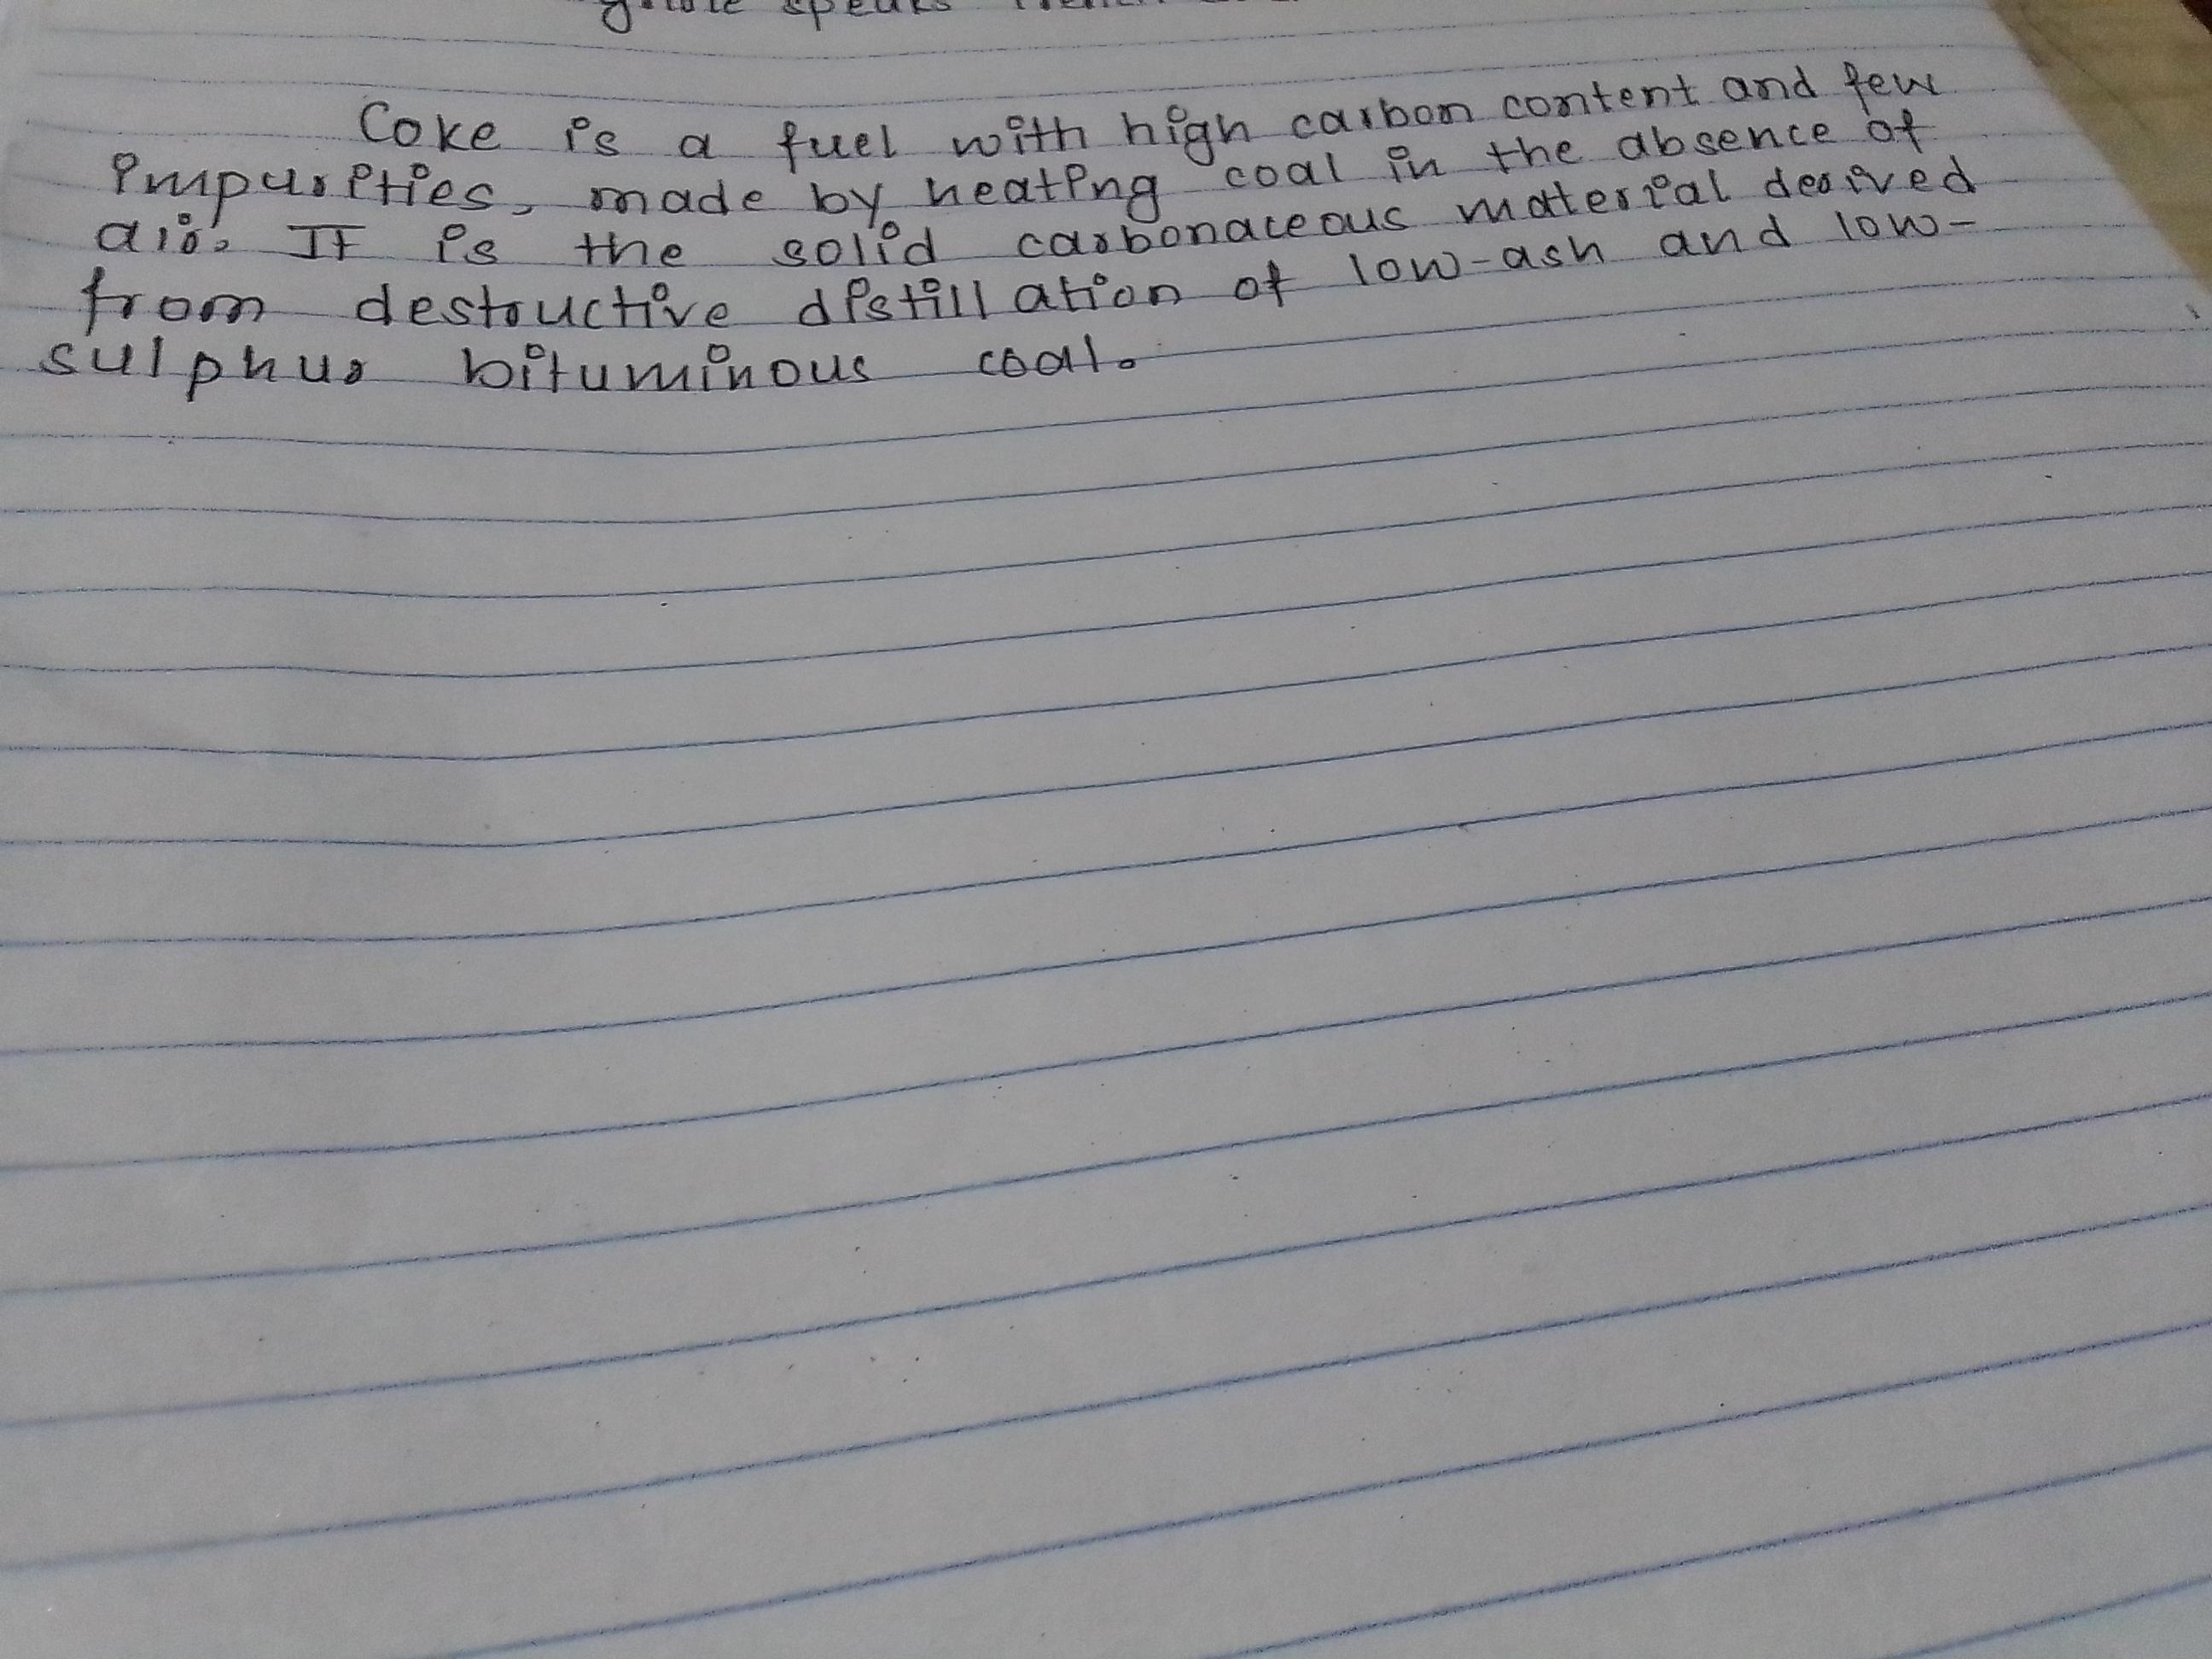 speaks
Coke is a fuel with high carbon content and few
impurities, made by heating coal in the absence of
air. It is the solid carbonaceous material derived
from destructive distillation of low-ash and low-
sulphur bituminous coal.